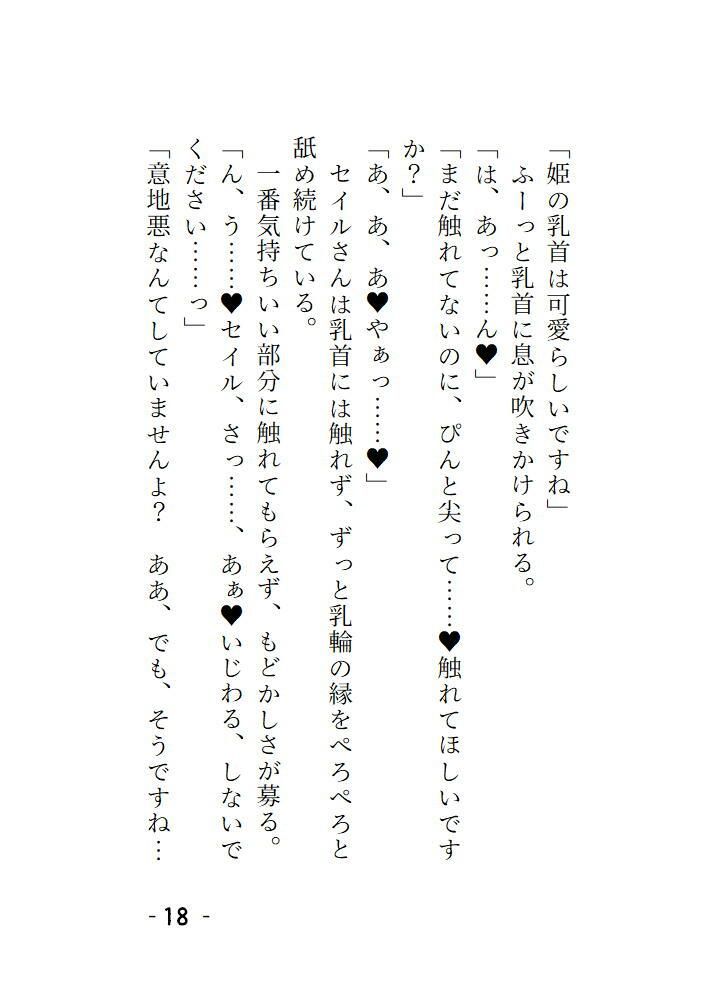 「姫の乳首は可愛らしいですね」
　ふーっと乳首に息が吹きかけられる。
「は、あっ……ん♥」
「まだ触れてないのに、ぴんと尖って……♥触れてほしいです
か？」
「あ、あ、あ♥やぁっ……♥」
　セイルさんは乳首には触れず、ずっと乳輪の縁をぺろぺろと
舐め続けている。
　一番気持ちいい部分に触れてもらえず、もどかしさが募る。
「ん、う……♥セイル、さっ……、あぁ♥いじわる、しないで
ください……っ」
「意地悪なんてしていませんよ？　ああ、でも、そうですね…
- 18 -